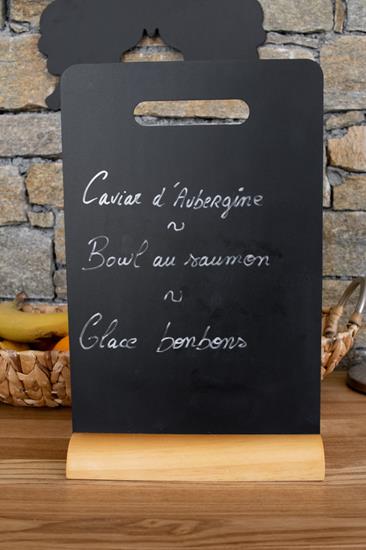 Caviar d'Aubergine
~
Bowl au saumon
~
Glace bonbons